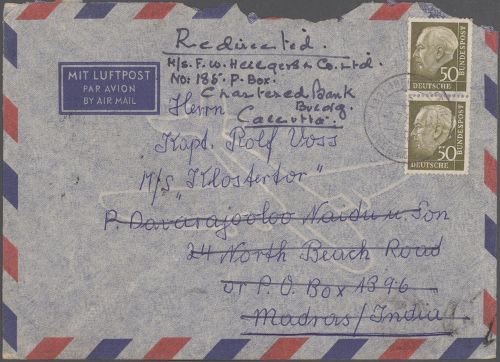 Redirected.
M/s. F. W. Heilgers & Co. Ltd.
No: 185. P. Box.
Chartered Bank
Buldg.
Calcutta.
MIT LUFTPOST
PAR AVION
BY AIR MAIL
Herrn
Kapt. Rolf Voss
M/S „Klostertor"
P. Davarajooloo Naidu u. Son
24 North Beach Road
or P.O. Box 1396
Madras/India
50
DEUTSCHE
BUNDESPOST
50
DEUTSCHE
BUNDESPOST